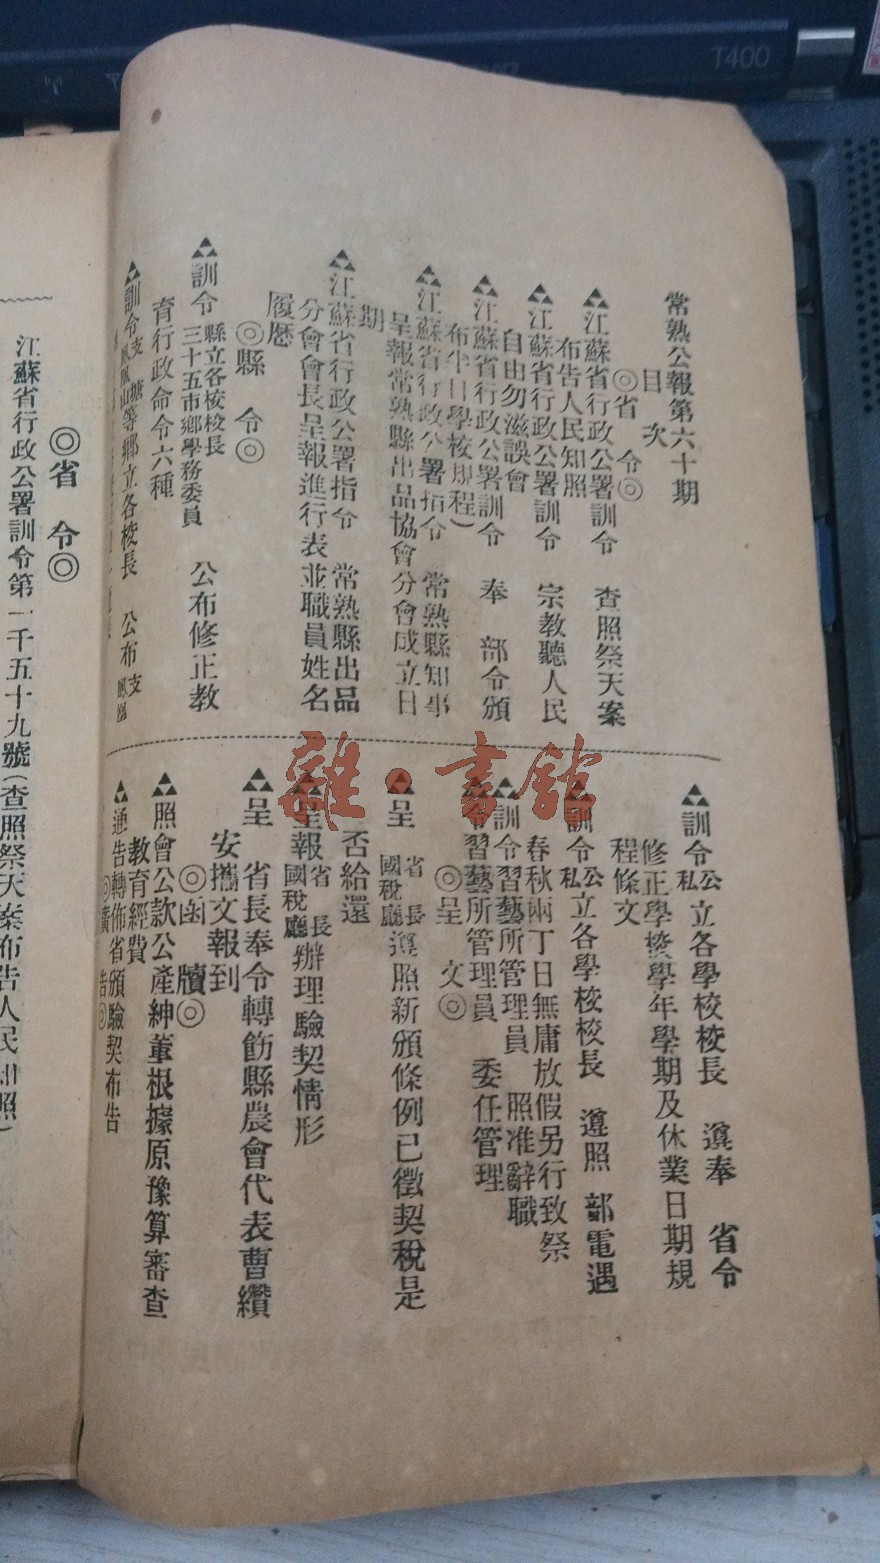 常熟公報第六十期
目次
◎省令◎
江蘇省行政公署訓令 查照祭天案
布告人民知照
江蘇省行政公署訓令 宗教聽人民
自由勿滋誤會
江蘇省行政公署訓令 奉 部令頒
布半日學校規程)
江蘇省行政公署指令 常熟縣知事
呈報常熟縣出品協會分會成立日
期
江蘇省行政公署指令 常熟縣出品
分會會長呈報進行表並職員姓名
履歷
◎縣 令◎
訓令 縣立各校校長
三十五市鄉學務委員 公布修正教
育行政命令六種
訓令 支塘等鄉立各校長 公布支
訓令公私立各學校校長 遵奉 省令
修正學校學年學期及休業日期規
程條文
訓令公私立各學校校長 遵照 部電遇
春秋兩丁日無庸放假另行致祭
訓令習藝所管理員 照准辭職
令習藝所管理員 委任管理
◎呈 文◎
呈 省長 國稅廳 遵照新頒條例已徵契稅是
否給還
呈報 省長 國稅廳 辦理驗契情形
呈 省長奉令轉飭縣農會代表曹纘
安攜文報到
◎函 牘◎
照會公款公產紳董根據原豫算審查
教育經費
通告轉佈省頒驗契布告
◎廣 告◎
◎省 令◎
江蘇省行政公署訓令第一千五十九號(查照祭天案布告人民知照)
雜·書館
T400